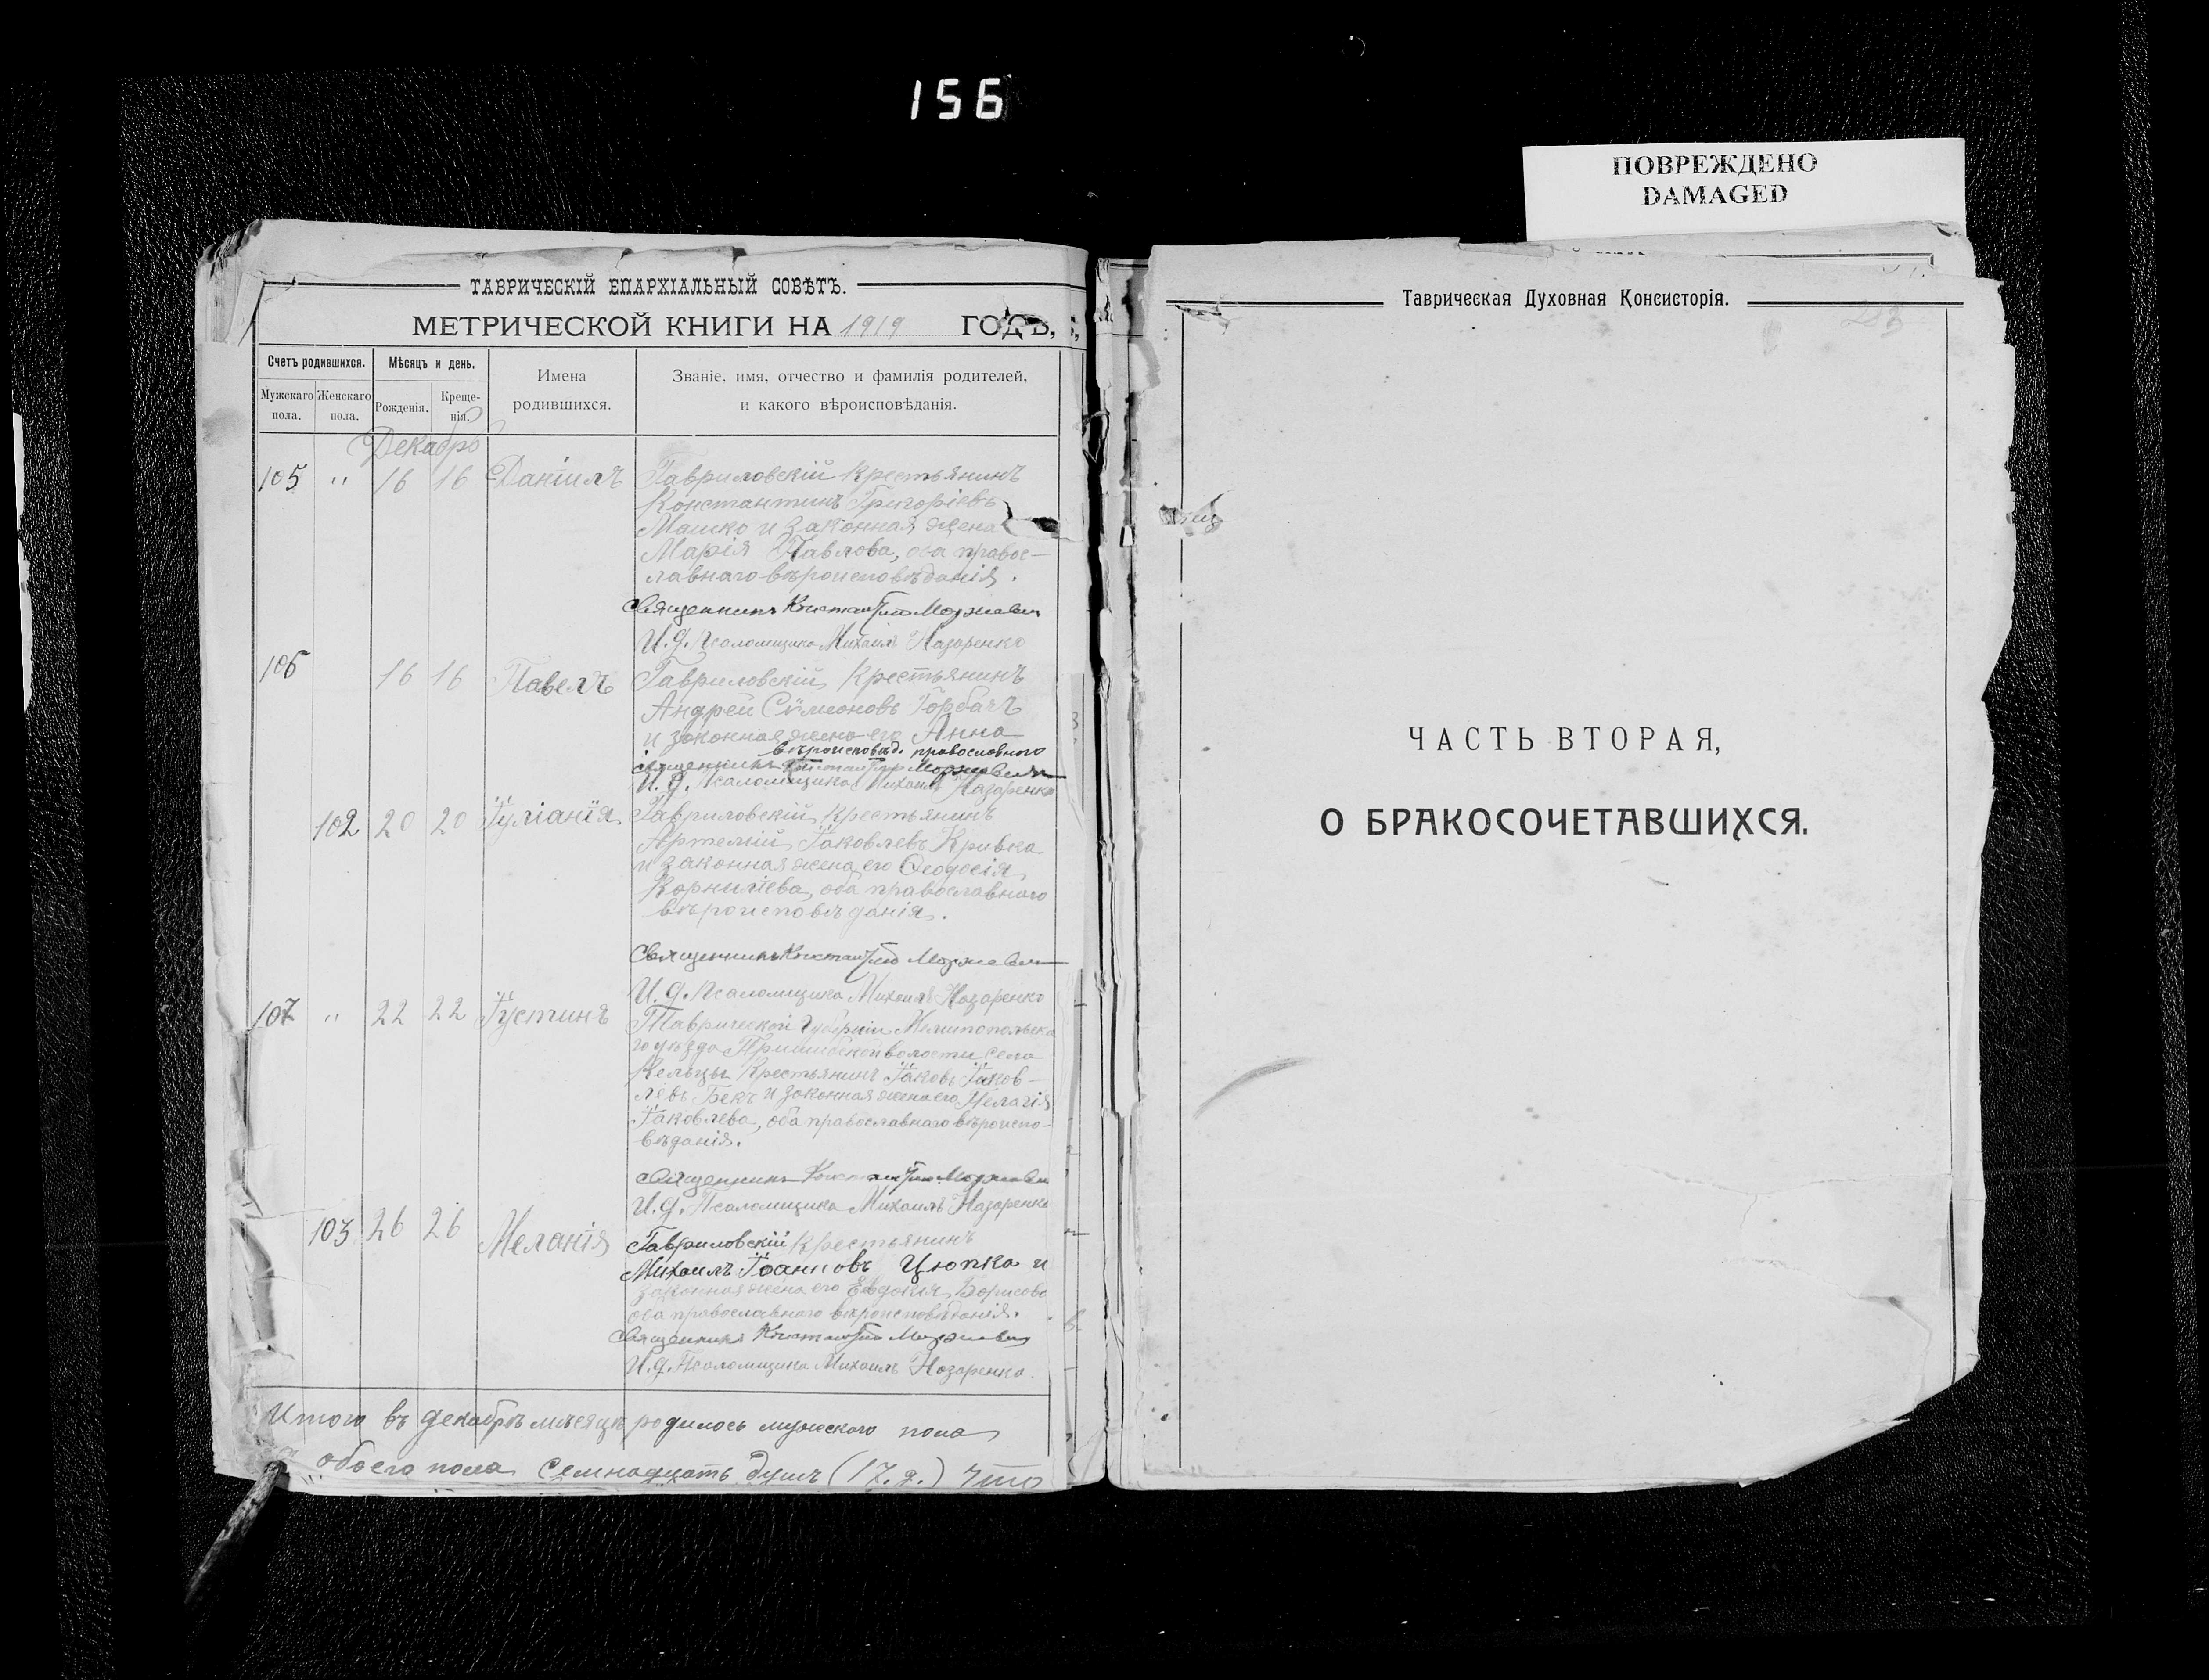 156
ПОВРЕЖДЕНО
DAMAGED
ТАВРИЧЕСКІЙ ЕПАРХІАЛЬНЫЙ СОВѢТЪ.
МЕТРИЧЕСКОЙ КНИГИ НА 1919 ГОДЪ,
Счетъ родившихся.
Мужскаго пола.
Женскаго пола.
Мѣсяцъ и день.
Рожденія.
Крещенія.
Имена
родившихся.
Званіе, имя, отчество и фамилія родителей,
и какого вѣроисповѣданія.
Декабрь
105 " 16 16 Даніилъ Гавриловскій крестьянинъ
Константинъ Григоріевъ
Машко и законная жена
Марія Павлова, оба правос-
лавнаго вѣроисповѣданія.
Священникъ
И. д. Псаломщика Михаилъ Назаренко
106 16 16 Павелъ Гавриловскій Крестьянинъ
Андрей Сѵмеоновъ Горбачъ
и законная жена его Анна
вѣроисповѣд. православнаго
Священникъ
И. д. Псаломщика Михаилъ Назаренко
102 20 20 Іуліанія Гавриловскій крестьянинъ
Артемій Іаковлевъ Кривка
и законная жена его Ѳеодосія
Корниліева, оба православнаго
вѣроисповѣданія.
Священникъ
И. д. Псаломщика Михаилъ Назаренко
107 " 22 22 Іустинъ Таврической Губерніи Мелитопольска
го уѣзда Пришибской волости села
Крестьянинъ Іаковъ Іаков-
левъ Бекъ и законная жена его Пелагія
Іаковлева, оба православнаго вѣроиспо-
вѣданія.
Священникъ
И. д. Псаломщика Михаилъ Назаренко
103 26 26 Меланія Гавриловскій крестьянинъ
Михаилъ Іоанновъ Цюпка и
законная жена его Евдокія Борисова
оба православнаго вѣроисповѣданія.
Священникъ
И. д. Псаломщика Михаилъ Назаренко.
Итого въ декабрѣ мѣсяцѣ родилось мужескаго пола
обоего пола семнадцать душъ (17. д.) Что
Таврическая Духовная Консисторія.
ЧАСТЬ ВТОРАЯ,
О БРАКОСОЧЕТАВШИХСЯ.